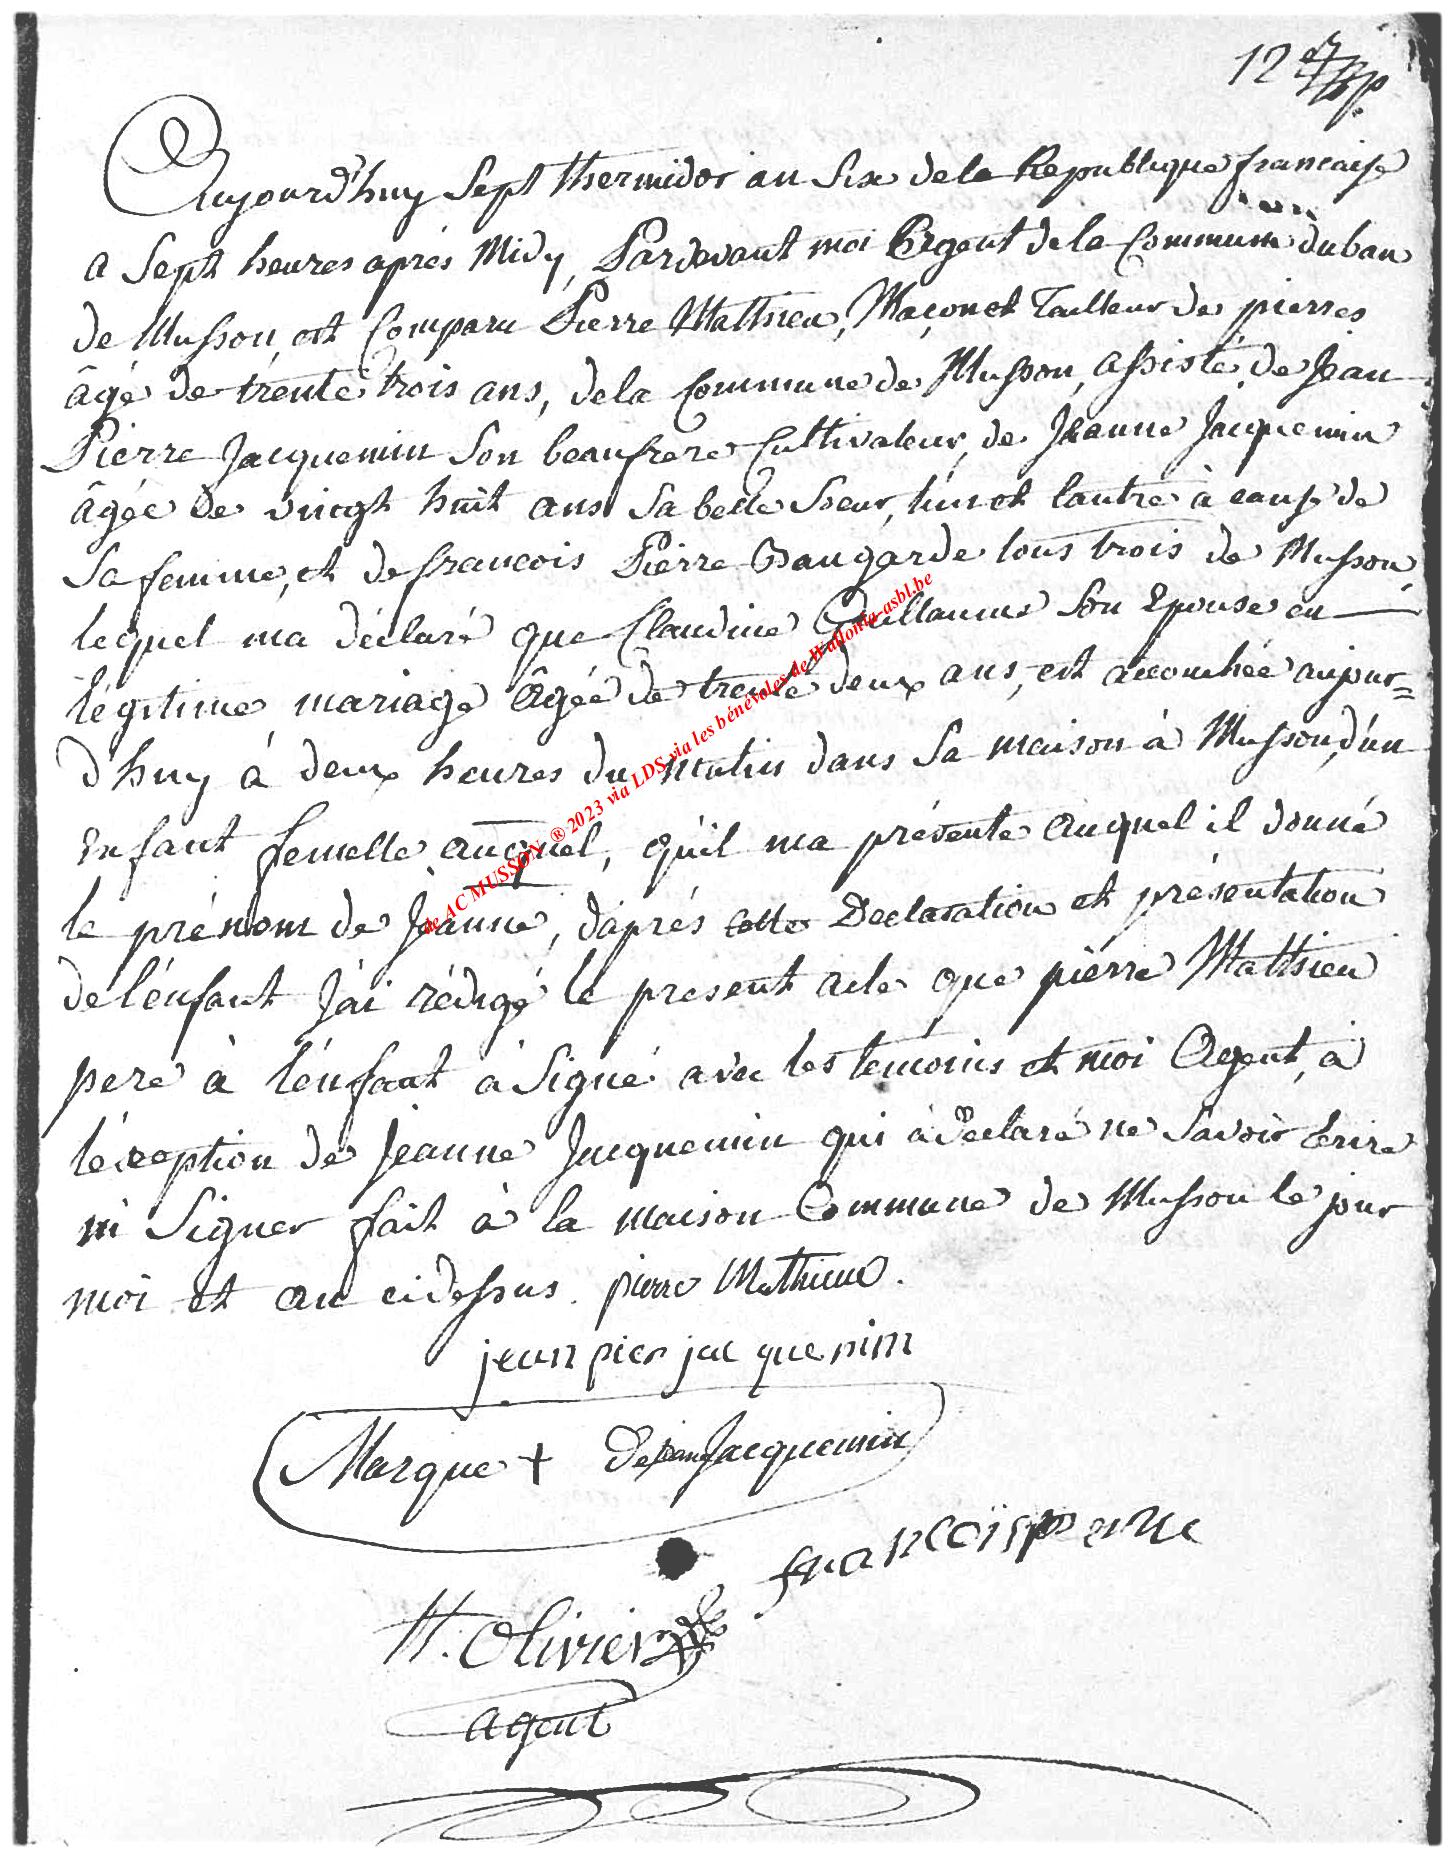 12
Aujourd'huy Sept thermidor an Six dela Republique francaise
a Sept heures aprés Midy, Pardevant moi Agent dela Commune duban
de Musson, est Comparu Pierre Matthieu, Maçon et Tailleur de pierres
âgé de trente trois ans, dela Commune de Musson, assisté de Jean
Pierre Jacquemin Son beaufrere Cultivateur, de Jeanne Jacquemin
âgée de vingt huit ans Sa belle Soeur, l'un et lautre à cause de
Sa femme, et de francois Pierre Baugarde tous trois de Musson,
lequel ma déclaré que Claudine Guillaume Son Epouse en
légitime mariage âgée de trente deux ans, est accouchée aujour=
d'huy à deux heures du matin dans Sa maison à Musson, d'un
Enfant femelle auquel, qu'il ma présenté auquel il donné
le prénom de Jeanne, d'aprés cette Declaration et présentation
de l'énfant J'ai rédigé le present acte que piérre Matthieu
pere à l'énfant à Signé avec les temoins et moi Agent, à
l'éxception de Jeanne Jacquemin qui à déclaré ne Savoir Ecrire
ni Signer fait à la maison Commune de Musson le jour
moi et an cidessus. pierre Mathieu.
jean pier jac quemin
Marque + de jean Jacquemin
francois pierre
H. Olivier
agent
de AC MUSSON ® 2023 via LDS via les bénévoles de Wallonia-asbl.be